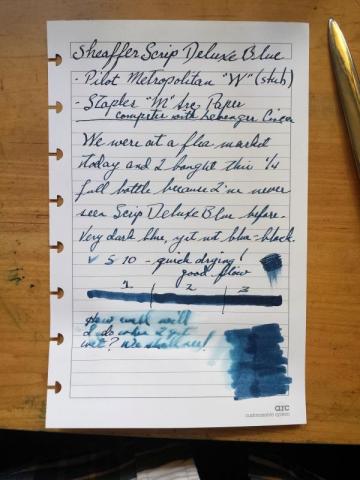 Sheaffer Scrip Deluxe Blue
- Pilot Metropolitan "W" (stub)
- Staples "M" Arc Paper
compete with Levenger Circa
We were at a flea market
today and I bought this 1/4
full bottle because I've never
seen Scrip Deluxe Blue before.
Very dark blue, yet not blue-black.
✓ 5-10 - quick drying!
good flow
1 2 3
How well will
I do when I get
wet? We shall see!
arc
customizable system